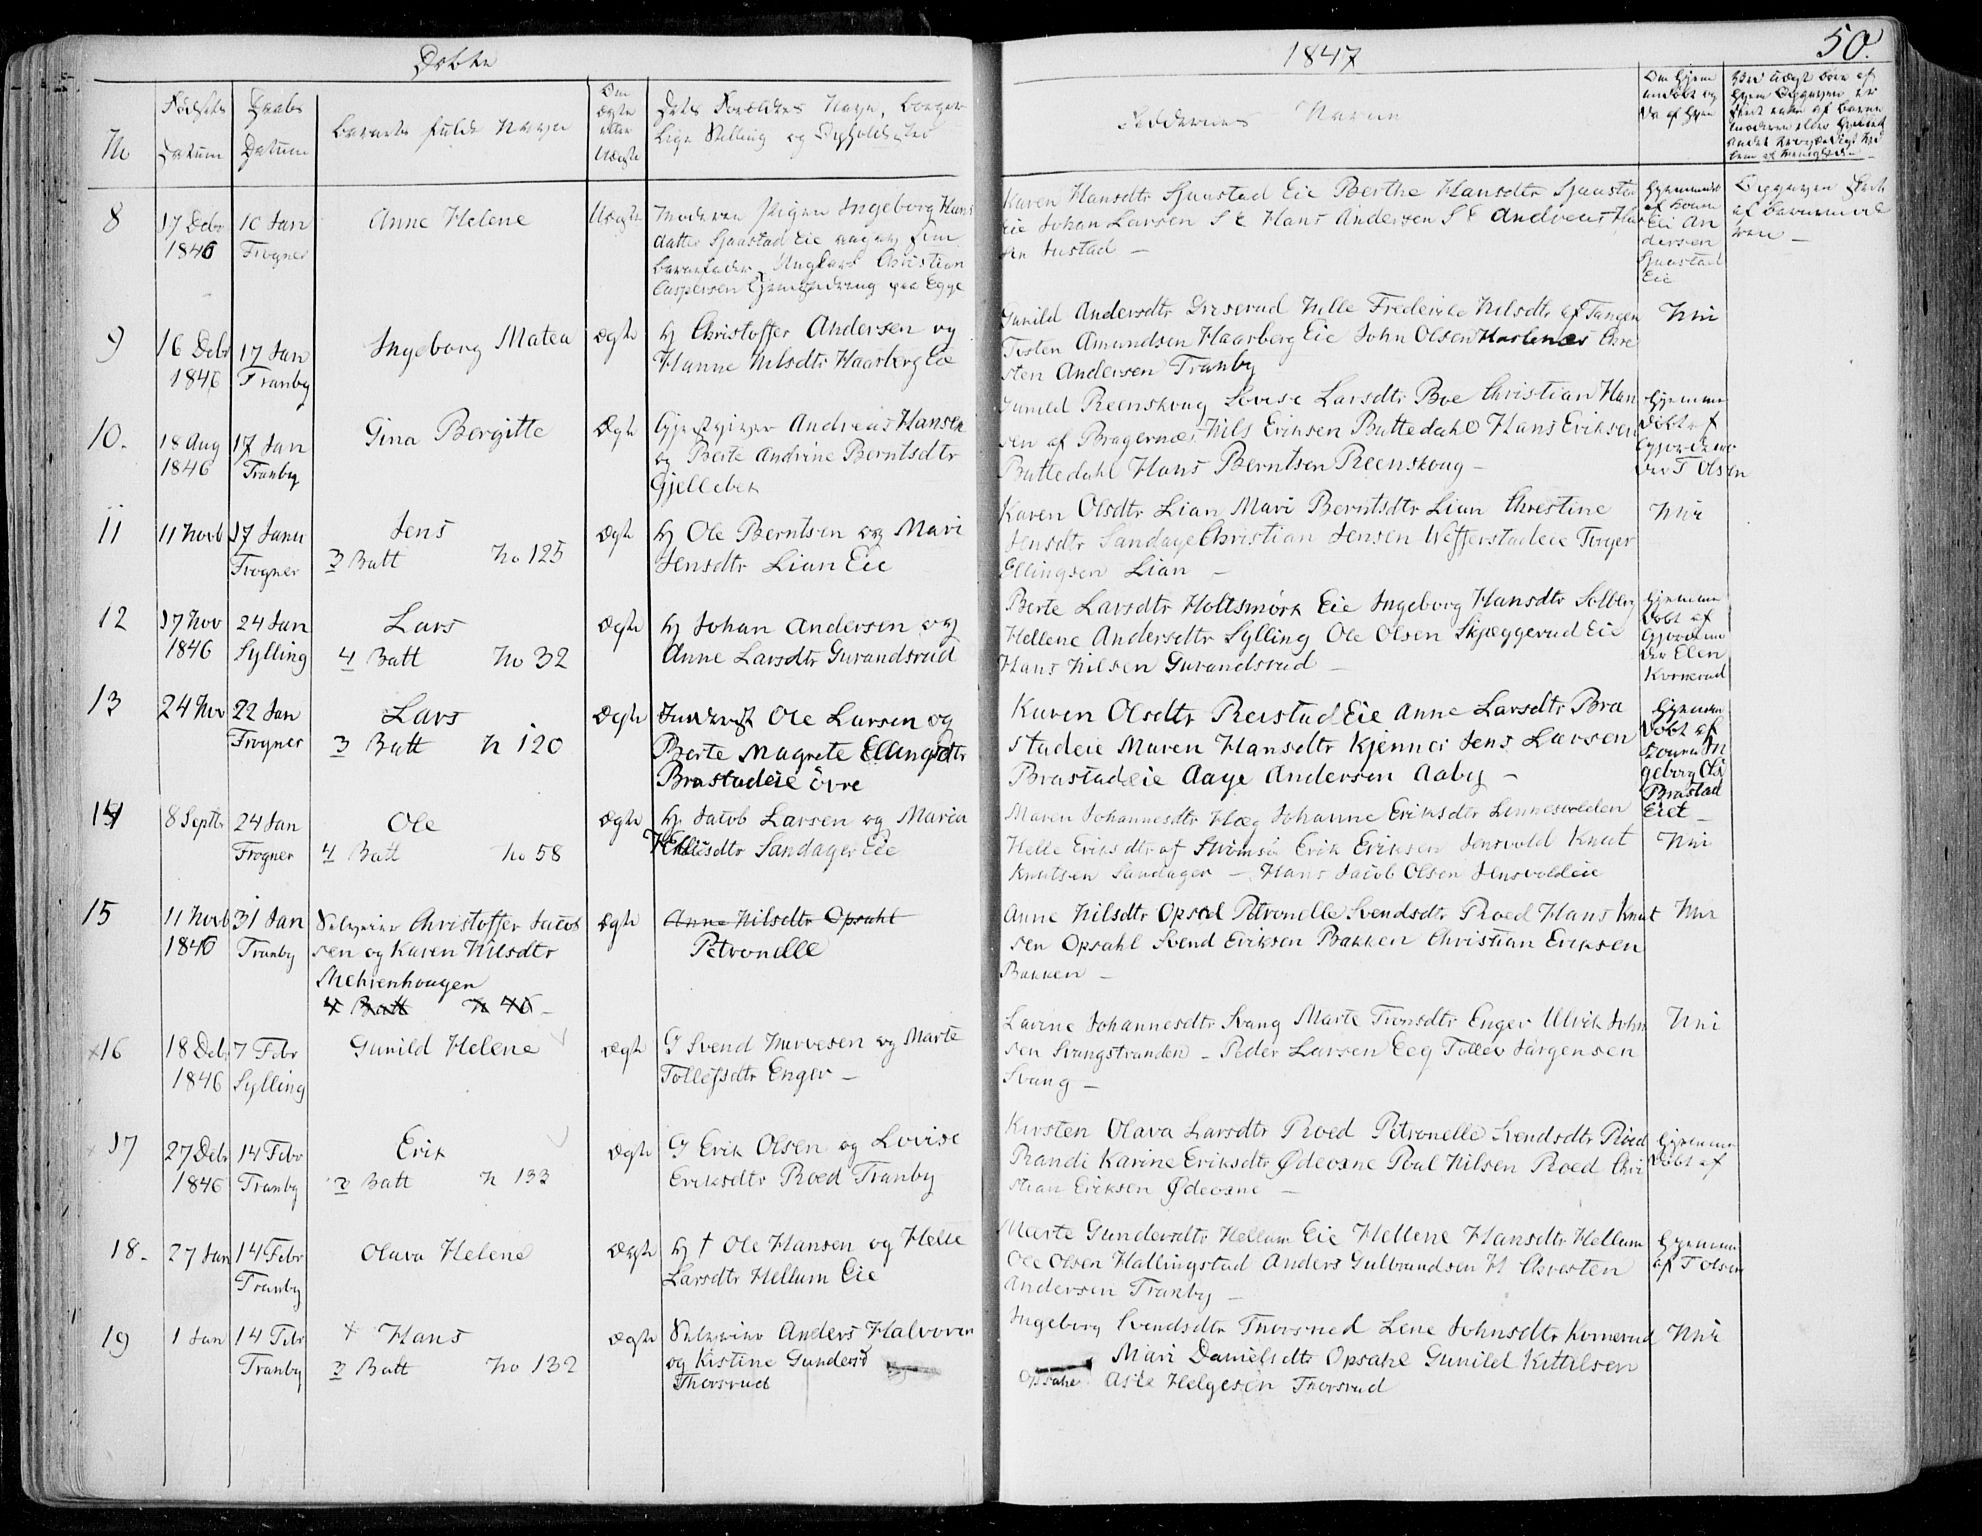 Døbte
1847
50.
No
Fødsels Datum
Daabs Datum
Barnets fulde Navn
Om ægte eller Uægte
Dets Forældres Navn, borgerlige Stilling og Opholdssted
Faddernes Navne
8
17 Debr 1846
10 Jan Frogner
Anne Helene
Uægte
Moderen Pigen Ingeborg Hans
datter Sjaastad Eie
barnefader Ungkarl Christian
Caspersen
Karen Hansdtr Sjaastad Eie Berthe Hansdtr Sjaastad
Eie Johan Larsen S E Hans Andersen S E Andreas Han
sen Justad —
Hjemmedøbt af
Andersen
Sjaastad
Eie
Opgaven skeet
af Barnemod
eren —
9
16 Debr 1846
17 Jan Tranby
Ingeborg Matea
Ægte
Hj Christoffer Andersen og
Hanne Nilsdtr Haarberg Eie
Gunild Andersdtr Griserud Helle Frederikke Nilsdtr af Tangen
Tosten Amundsen Haarberg Eie John Olsen Haslenæs Chre
sten Andersen Tranby
Nei
10.
18 Aug 1846
17 Jan Tranby
Gina Bergitte
Ægte
Gjestgiver Andreas Hansen
og Berte Andrine Berntsdtr
Gjellebek
Gunild Reenskoug Lovise Larsdtr Boe Christian Han
sen af Bragernæs Nils Eriksen Buttedahl Hans Eriksen
Buttedahl Hans Berntsen Reenskoug —
Hjemme
døbt af
T Olsen
11
11 Novb
17 Janu Frogner
Jens
3 Batt No 125
Ægte
Hj Ole Berntsen og Mari
Jensdtr Lian Eie
Karen Olsdtr Lian Mari Berntsdtr Lian Chrestine
Jensdtr Sandager Christian Jensen Wefferstadeie Torger
Ellingsen Lian —
Nei
12
17 Nov 1846
24 Jan Sylling
Lars
4 Batt No 32
Ægte
Hj Johan Andersen og
Anne Larsdtr Gurandsrud
Berte Larsdtr Holtsmørk Eie Ingeborg Hansdtr Solberg
Hellene Andersdtr Sylling Ole Olsen Skjæggerud Eie
Hans Nilsen Gurandsrud —
Hjemme
døbt af
Gjordemo
der Elen
Kornerud
13
24 Nov
22 Jan Frogner
Lars
3 Batt N 120
Ægte
Inderst Ole Larsen og
Berte Magrete Ellingsdtr
Brastadeie øvre
Karen Olsdtr Reistad Eie Anne Larsdtr Bra
stadeie Maren Hansdtr Kjenner Jens Larsen
Brastadeie Aage Andersen Aaby —
Hjemme
døbt af
Kone In
geborg Ols
Brastad
Eiet —
14
8 Septbr
24 Jan Frogner
Ole
4 Batt No 58
Ægte
Hj. Jacob Larsen og Maria
Sandager Eie
Maren Johannesdtr Hæg Johanne Eriksdtr Linnesvolden
Helle Eriksdtr af Strømsø Erik Eriksen Jensvold Knut
Knutsen Sandager — Hans Jacob Olsen Jensvoldeie
Nei
15
11 Novb 1846
31 Jan Tranby
Selveier Christoffer Jacob
sen og Karen Nilsdtr
Mehrenhougen
4 Batt N 46 —
Ægte
Anne Nilsdtr Opsahl
Petronelle
Anne Nilsdtr Opsal Petronelle Svendsdtr Roed Hans Knut
sen Opsahl Svend Eriksen Bakken Christian Eriksen
Bakken —
Nei
16
18 Debr 1846
7 Febr Sylling
Gunild Helene
Ægte
G Svend Narvesen og Marte
Tollefsdtr Enger —
Lavine Johannesdtr Svang Marte Tronsdtr Enger Ulrik John
sen Svangstranden — Peder Larsen Eeg Tollev Jørgensen
Svang —
Nei
17
27 Debr 1846
14 Febr Tranby
Erik
3 Batt N 133
Ægte
G Erik Olsen og Lovise
Eriksdtr Roed Tranby
Kirsten Olava Larsdtr Roed Petronelle Svendsdtr Roed
Randi Karine Eriksdtr Ødevane Poul Nilsen Roed Chri
stian Eriksen Ødevane —
Hjemme
døbt af
18.
27 Jan
14 Febr Tranby
Olava Helene
Ægte
Hj † Ole Hansen og Helle
Larsdtr Hellum Eie
Marte Gundersdtr Hellum Eie Hellene Hansdtr Hellum
Ole Olsen Hallingstad Anders Gulbrandsen H Chresten
Andersen Tranby —
Hjemme
af T Olsen
19
1 Jan
14 Febr Tranby
+ Hans
3 Batt No 132
Ægte
Selveier Anders Halvorsen
og Kistine Gundersd
Thorsrud
Ingeborg Svendsdtr Thorsrud Lene Johnsdtr Kornerud
Mari Danielsdtr Opsahl Gunild Kittelsen
Opsahl Asle Helgesen Thorsrud
Nei